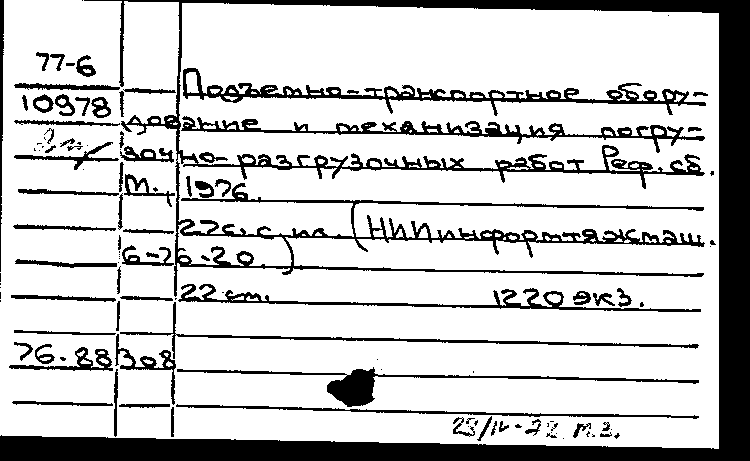 77-6
10978
Подъемно-транспортное обору-
дование и механизация погру-
зочно-разгрузочных работ Реф. сб.
М., 1976.
27с. с ил. (НИИинформтяжмаш.
6-76-20.)
22 см. 1220 экз.
76.88308
М.З.